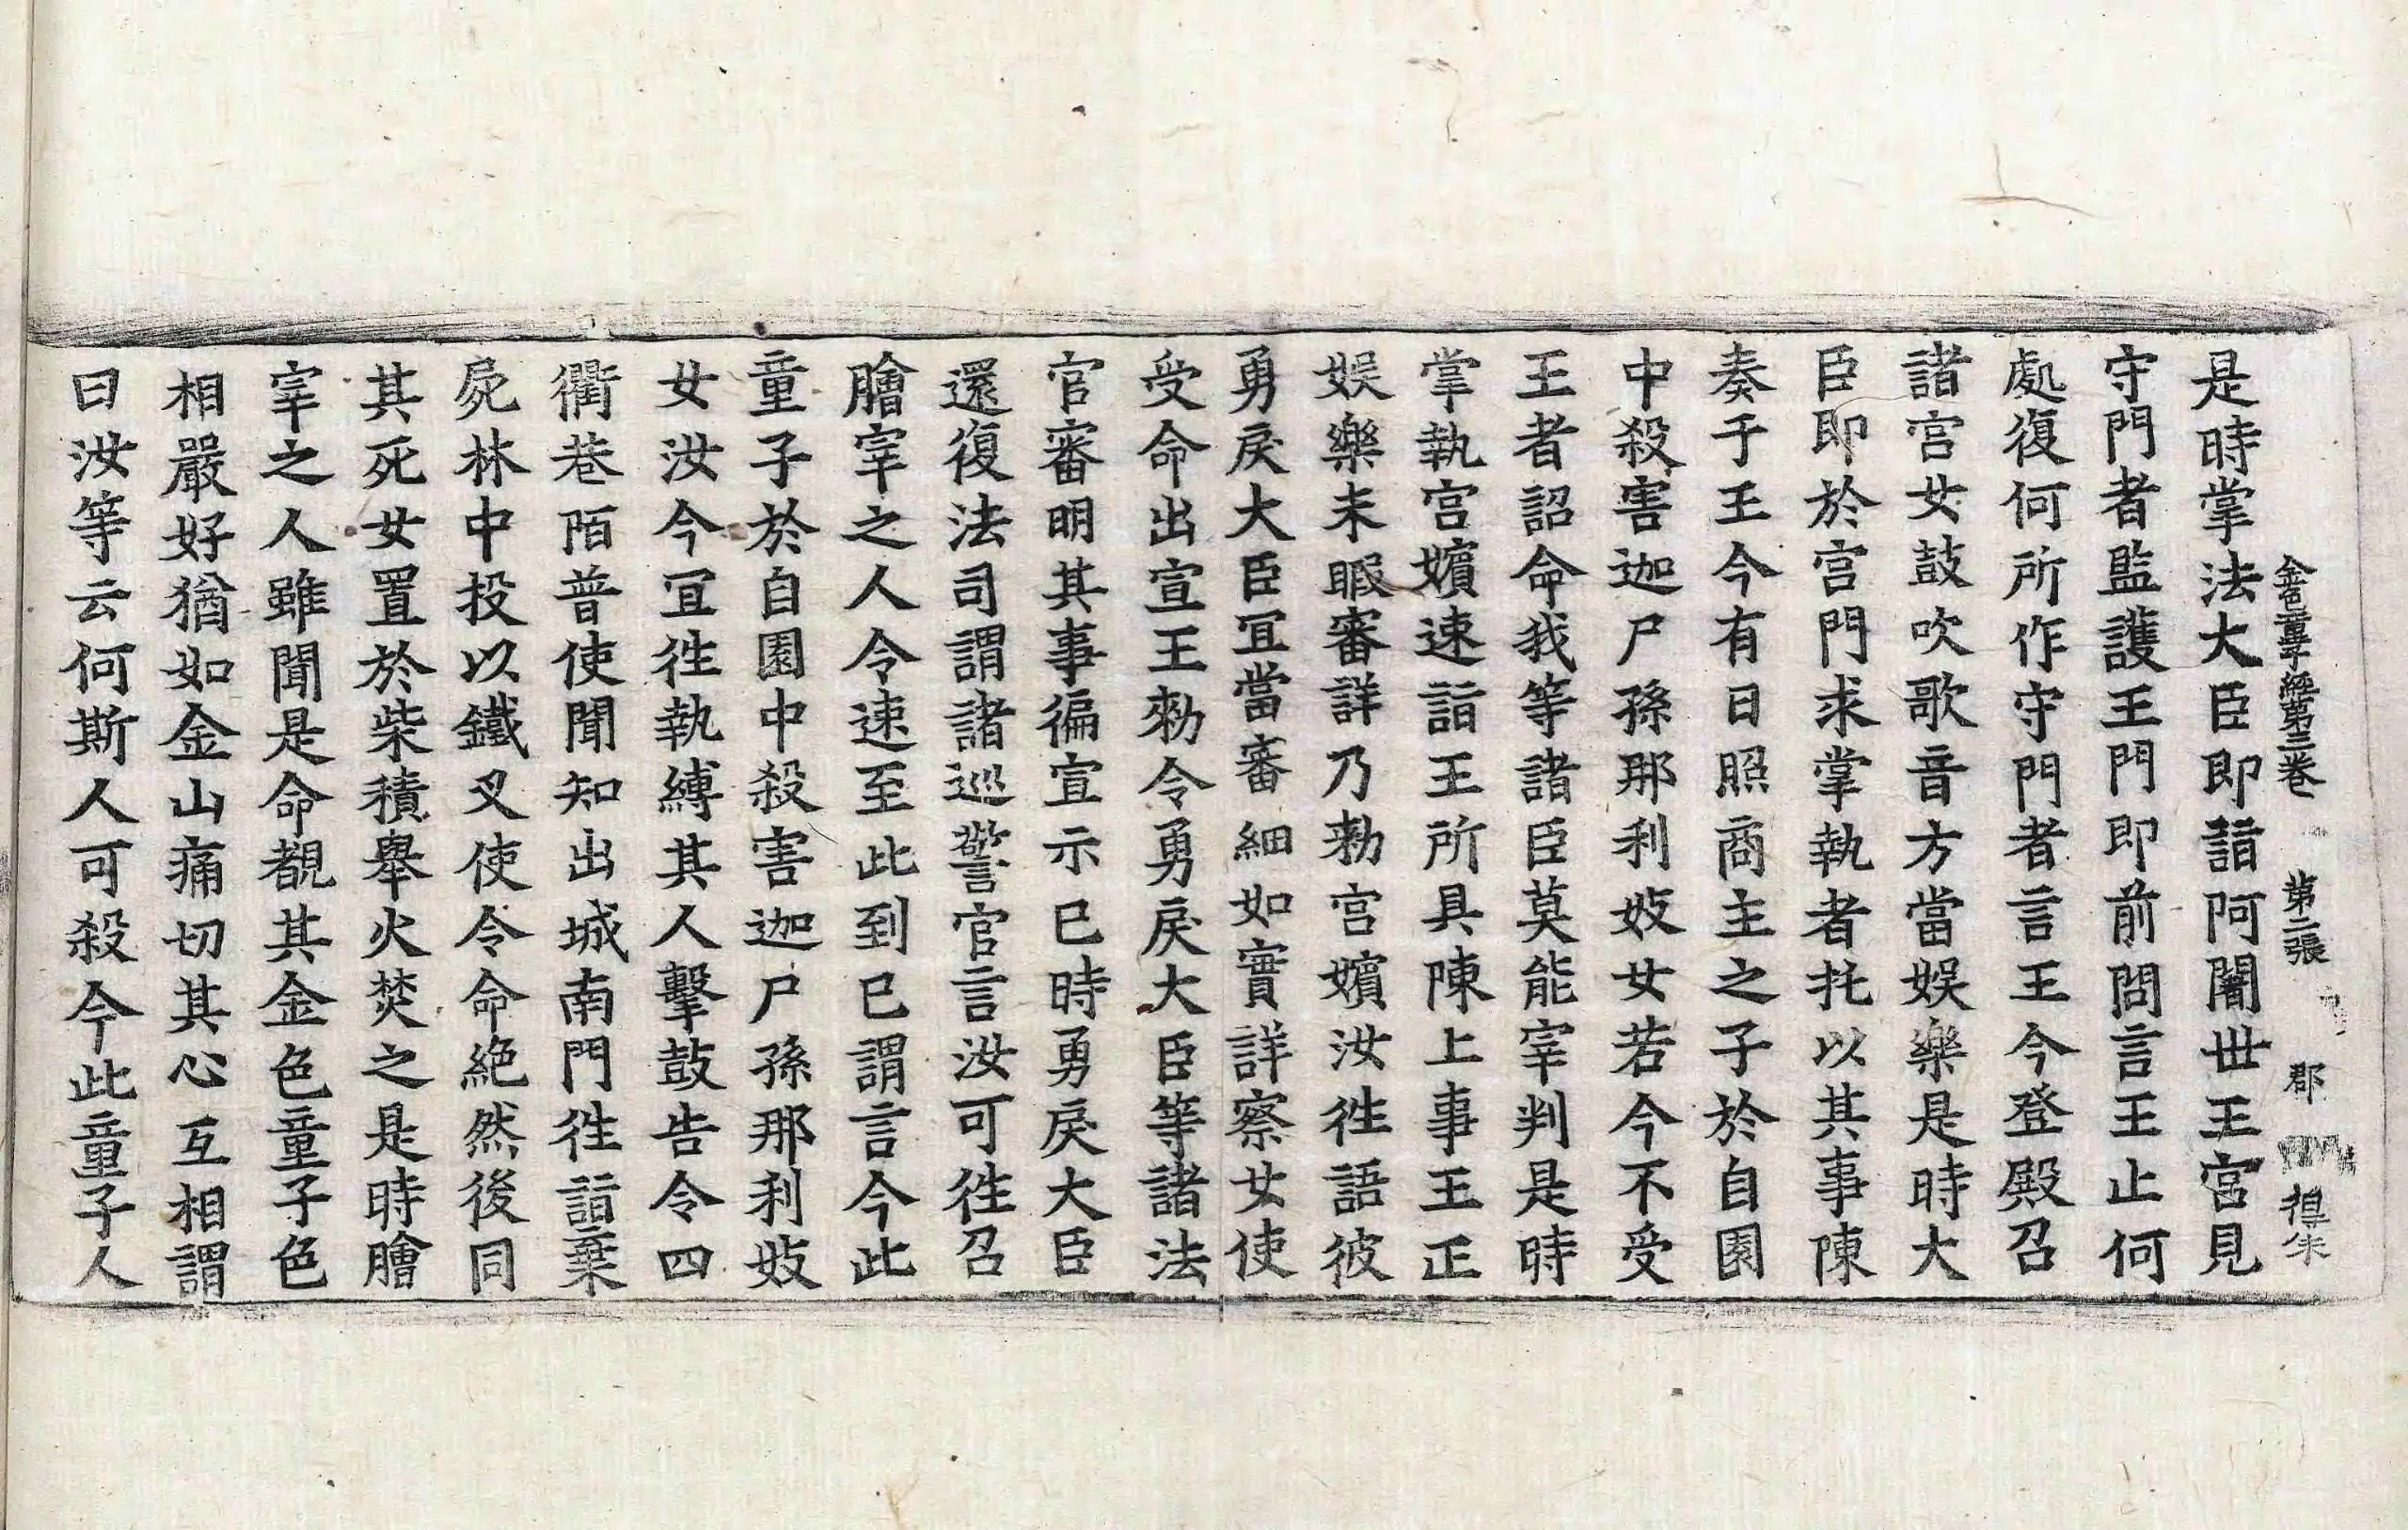 金色童子經第三卷 第二張 郡
是時掌法大臣即詣阿闍世王宮見
守門者監護王門即前問言王止何
處復何所作守門者言王今登殿召
諸宮女鼓吹歌音方當娛樂是時大
臣即於宮門求掌執者托以其事陳
奏于王今有日照商主之子於自園
中殺害迦尸孫那利妓女若今不受
王者詔命我等諸臣莫能宰判是時
掌執宮嬪速詣王所具陳上事王正
娛樂未暇審詳乃勑宮嬪汝徃語彼
勇戾大臣冝當審細如實詳察女使
受命出宣王勑令勇戾大臣等諸法
官審明其事徧宣示已時勇戾大臣
還復法司謂諸巡警官言汝可徃召
膾宰之人令速至此到已謂言今此
童子於自園中殺害迦尸孫那利妓
女汝今冝徃執縛其人擊鼓告令四
衢巷陌普使聞知出城南門徃詣棄
屍林中投以鐵叉使令命絶然後同
其死女置於柴積舉火焚之是時膾
宰之人雖聞是命覩其金色童子色
相嚴好猶如金山痛切其心互相謂
曰汝等云何斯人可殺今此童子人